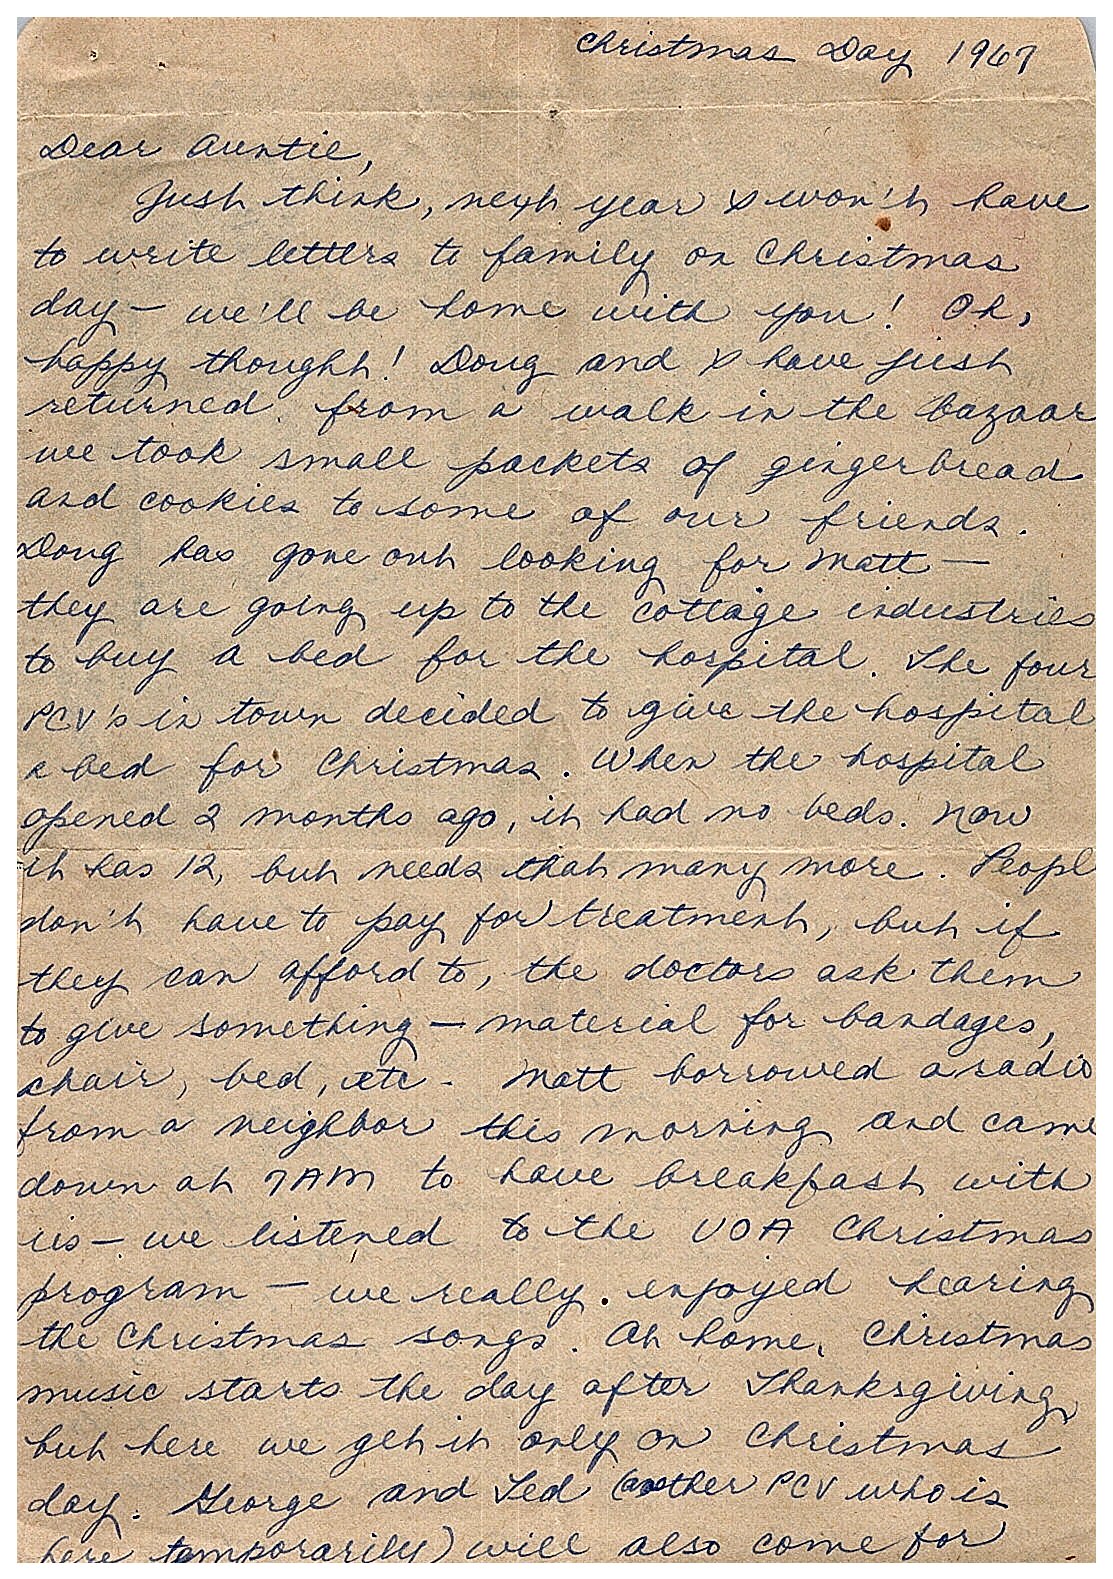 Christmas Day 1967
Dear Auntie,
Just think, next year I won't have
to write letters to family on Christmas
day — we'll be home with you! Oh,
happy thought! Doug and I have just
returned from a walk in the bazaar
we took small packets of gingerbread
and cookies to some of our friends.
Doug has gone out looking for Matt —
they are going up to the cottage industries
to buy a bed for the hospital. The four
PCV's in town decided to give the hospital
a bed for Christmas. When the hospital
opened 2 months ago, it had no beds. Now
it has 12, but needs that many more. Peopl
don't have to pay for treatment, but if
they can afford to, the doctors ask them
to give something — material for bandages,
chair, bed, etc. Matt borrowed a radio
from a neighbor this morning and came
down at 7AM to have breakfast with
us — we listened to the VOA Christmas
program — we really enjoyed hearing
the Christmas songs. At home, Christmas
music starts the day after Thanksgiving,
but here we get it only on Christmas
day. George and Ted (another PCV who is
here temporarily) will also come for